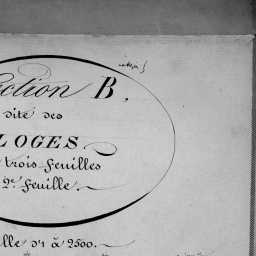 ection B,
dite des
LOGES
trois feuilles
2e. feuille.
lle d'1 à 2500.